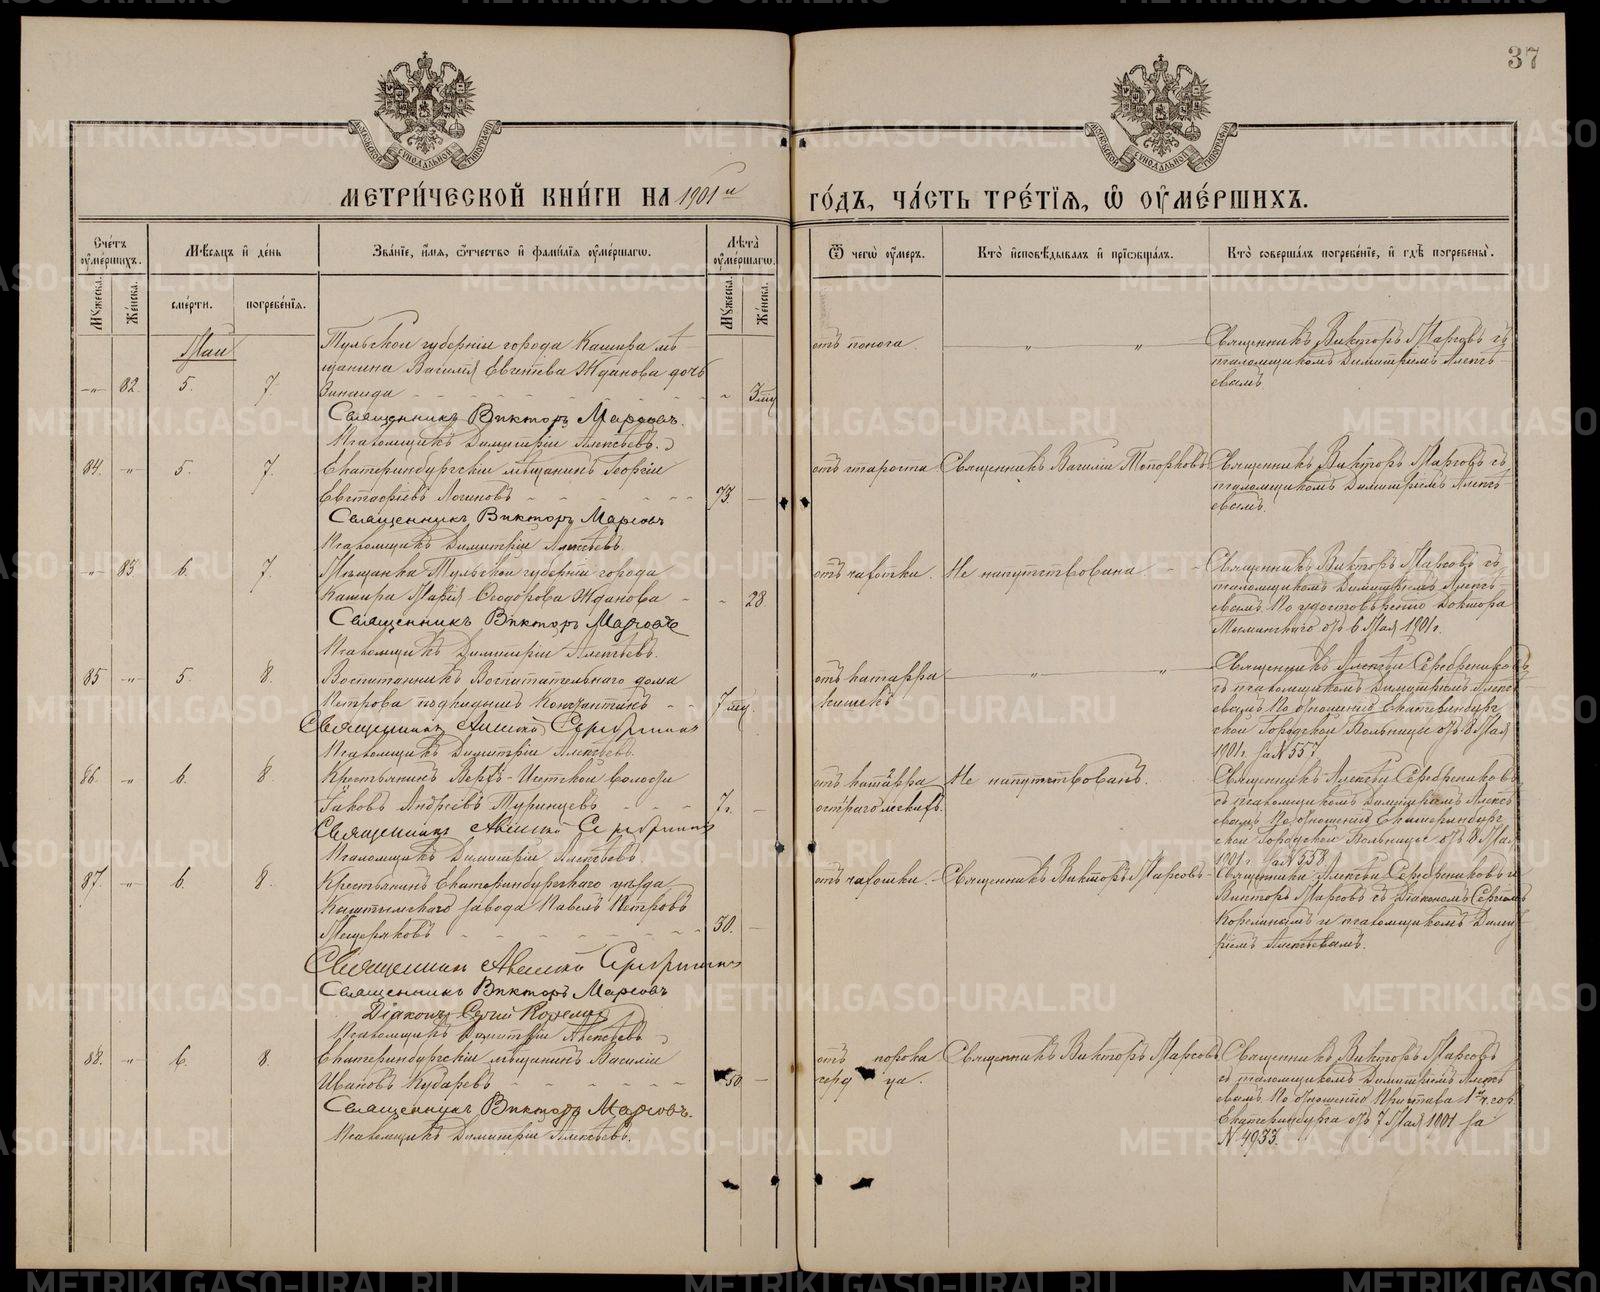 37
МЕТРИ́ЧЕСКОЙ КНИ́ГИ НА 1901 й ГО́ДЪ, ЧА́СТЬ ТРЕ́ТІѦ, Ѡ҆ ОУ҆МЕ́РШИХЪ.
Сче́тъ оу҆ме́ршихъ.
Мѣ́сяцъ и҆ де́нь
Зва́нїе, и҆́мя, ѻ҆́тчество и҆ фами́лїя оу҆ме́ршагѡ.
Лѣ́та оу҆ме́ршагѡ.
Ѿ чегѡ̀ оу҆́меръ.
Кто̀ и҆сповѣ́дывалъ и҆ прїѡбща́лъ.
Кто̀ соверша́лъ погребе́нїе, и҆ гдѣ̀ погребены̀.
Мꙋ́жеска. Же́нска.
сме́рти. погребе́нїя.
Мꙋ́жеска. Же́нска.
Май
Тульской губерніи города Каширы мѣ
щанина Василія Евгеніева Жданова дочь
—"— 82. 5. 7. Зинаида - - - " 3 мц
Священникъ Викторъ Марсовъ.
Псаломщикъ Димитрій Алексѣевъ.
отъ поноса
" "
Священникъ Викторъ Марсовъ съ
псаломщикомъ Димитріемъ Алексѣ
евымъ.
84. —"— 5. 7. Екатеринбургскій мѣщанинъ Георгій
Евстафіевъ Логиновъ - - - 73 —
Священникъ Викторъ Марсовъ
Псаломщикъ Димитрій Алексѣевъ.
отъ старости
Священникъ Василій Топорковъ
Священникъ Викторъ Марсовъ съ
псаломщикомъ Димитріемъ Алексѣ
евымъ.
—"— 83. 6. 7. Мѣщанка Тульской губерніи города
Кашира Марія Ѳеодорова Жданова - " 28
Священникъ Викторъ Марсовъ
Псаломщикъ Димитрій Алексѣевъ.
отъ чахотки.
Не напутствована. - -
Священникъ Викторъ Марсовъ съ
псаломщикомъ Димитріемъ Алексѣ
евымъ. По удостовѣренію Доктора
отъ 6 Мая 1901 г.
85 —"— 5. 8. Воспитанникъ Воспитательнаго дома
Петрова подкидышъ Константинъ - - 7 мц.
Священникъ Алексѣй Серебренниковъ
Псаломщикъ Димитрій Алексѣевъ.
отъ катарра
кишекъ
" "
Священникъ Алексѣй Серебрениковъ
съ псаломщикомъ Димитріемъ Алексѣ
евымъ. По отношенію Екатеринбург
ской Городской Больницы отъ 8 Мая
1901 г. за № 557
86 " 6. 8. Крестьянинъ Верхъ-Исетской волости
Іаковъ Андреевъ Туринцевъ - - - 7 г. —
Священникъ Алексѣй Серебренниковъ
Псаломщикъ Димитрій Алексѣевъ.
отъ катарра
остраго
Не напутствованъ.
Священникъ Алексѣй Серебрениковъ
съ псаломщикомъ Димитріемъ Алексѣ
евымъ. По отношенію Екатеринбург
ской Городской Больницы отъ 8 Мая
1901 г. за № 558.
87. —"— 6. 8. Крестьянинъ Екатеринбургскаго уѣзда
Кыштымскаго завода Павелъ Петровъ
Мещеряковъ - - - 30. —
Священникъ Алексѣй Серебренниковъ
Священникъ Викторъ Марсовъ
Діаконъ Сергій Корелинъ
Псаломщикъ Димитрій Алексѣевъ
отъ чахотки.
Священникъ Викторъ Марсовъ
Священники Алексѣй Серебрениковъ и
Викторъ Марсовъ съ Діакономъ Сергіемъ
Корелинымъ и псаломщикомъ Димит
ріемъ Алексѣевымъ.
88. —"— 6. 8. Екатеринбургскій мѣщанинъ Василій
Ивановъ Кударевъ - - - 50 —
Священникъ Викторъ Марсовъ.
Псаломщикъ Димитрій Алексѣевъ.
отъ порока
сердца.
Священникъ Викторъ Марсовъ
Священникъ Викторъ Марсовъ
съ псаломщикомъ Димитріемъ Алексѣ
евымъ. По отношенію Пристава 1й ч. гор.
Екатеринбурга отъ 7 Мая 1901 за
№ 4933.
METRIKI.GASO-URAL.RU